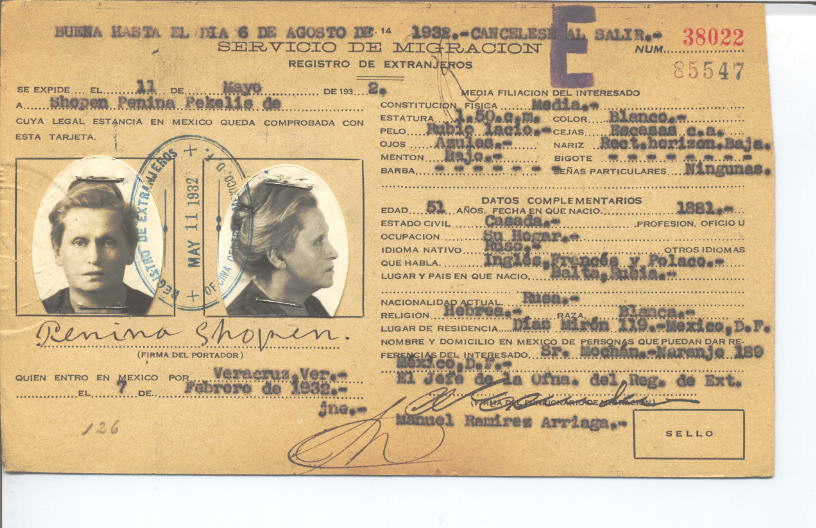 BUENA HASTA EL DIA 6 DE AGOSTO DE 14 1932.-CANCELESE AL SALIR.-
E
SERVICIO DE MIGRACION
NUM. 38022
REGISTRO DE EXTRANJEROS
85547
SE EXPIDE EL 11 DE Mayo DE 1932.
A Shopen Penina Pekelis de
CUYA LEGAL ESTANCIA EN MEXICO QUEDA COMPROBADA CON
ESTA TARJETA.
REGISTRO DE EXTRANJEROS
MAY 11 1932
Penina Shopen.
(FIRMA DEL PORTADOR)
QUIEN ENTRO EN MEXICO POR Veracruz,Ver.-
EL 7 DE Febrero de 1932.-
jne.-
126
MEDIA FILIACION DEL INTERESADO
CONSTITUCION FISICA Media.-
ESTATURA 1.50.c.m. COLOR Blanco.-
PELO Rubio lacio.- CEJAS Escasas c.a.
OJOS Azules.- NARIZ Rect.horizon.Baja.
MENTON Bajo.- BIGOTE - - - - - - -
BARBA - - - - - - - SEÑAS PARTICULARES Ningunas.
DATOS COMPLEMENTARIOS
EDAD 51 AÑOS. FECHA EN QUE NACIO. 1881.-
ESTADO CIVIL Casada.- PROFESION, OFICIO U
OCUPACION Su Hogar.-
IDIOMA NATIVO Ruso.- OTROS IDIOMAS
QUE HABLA. Inglés,Francés y Polaco.-
LUGAR Y PAIS EN QUE NACIO. Balta,Rusia.-
NACIONALIDAD ACTUAL Rusa.-
RELIGION Hebrea.- RAZA Blanca.-
LUGAR DE RESIDENCIA Días Mirón 119.-Mexico,D.F.
NOMBRE Y DOMICILIO EN MEXICO DE PERSONAS QUE PUEDAN DAR RE-
FERENCIAS DEL INTERESADO. Sr. Mochán.-Naranjo 189
México,D.F.-
El Jefe de la Ofna. del Reg. de Ext.
(FIRMA DEL FUNCIONARIO DE MIGRACION)
Manuel Ramirez Arriaga.-
SELLO